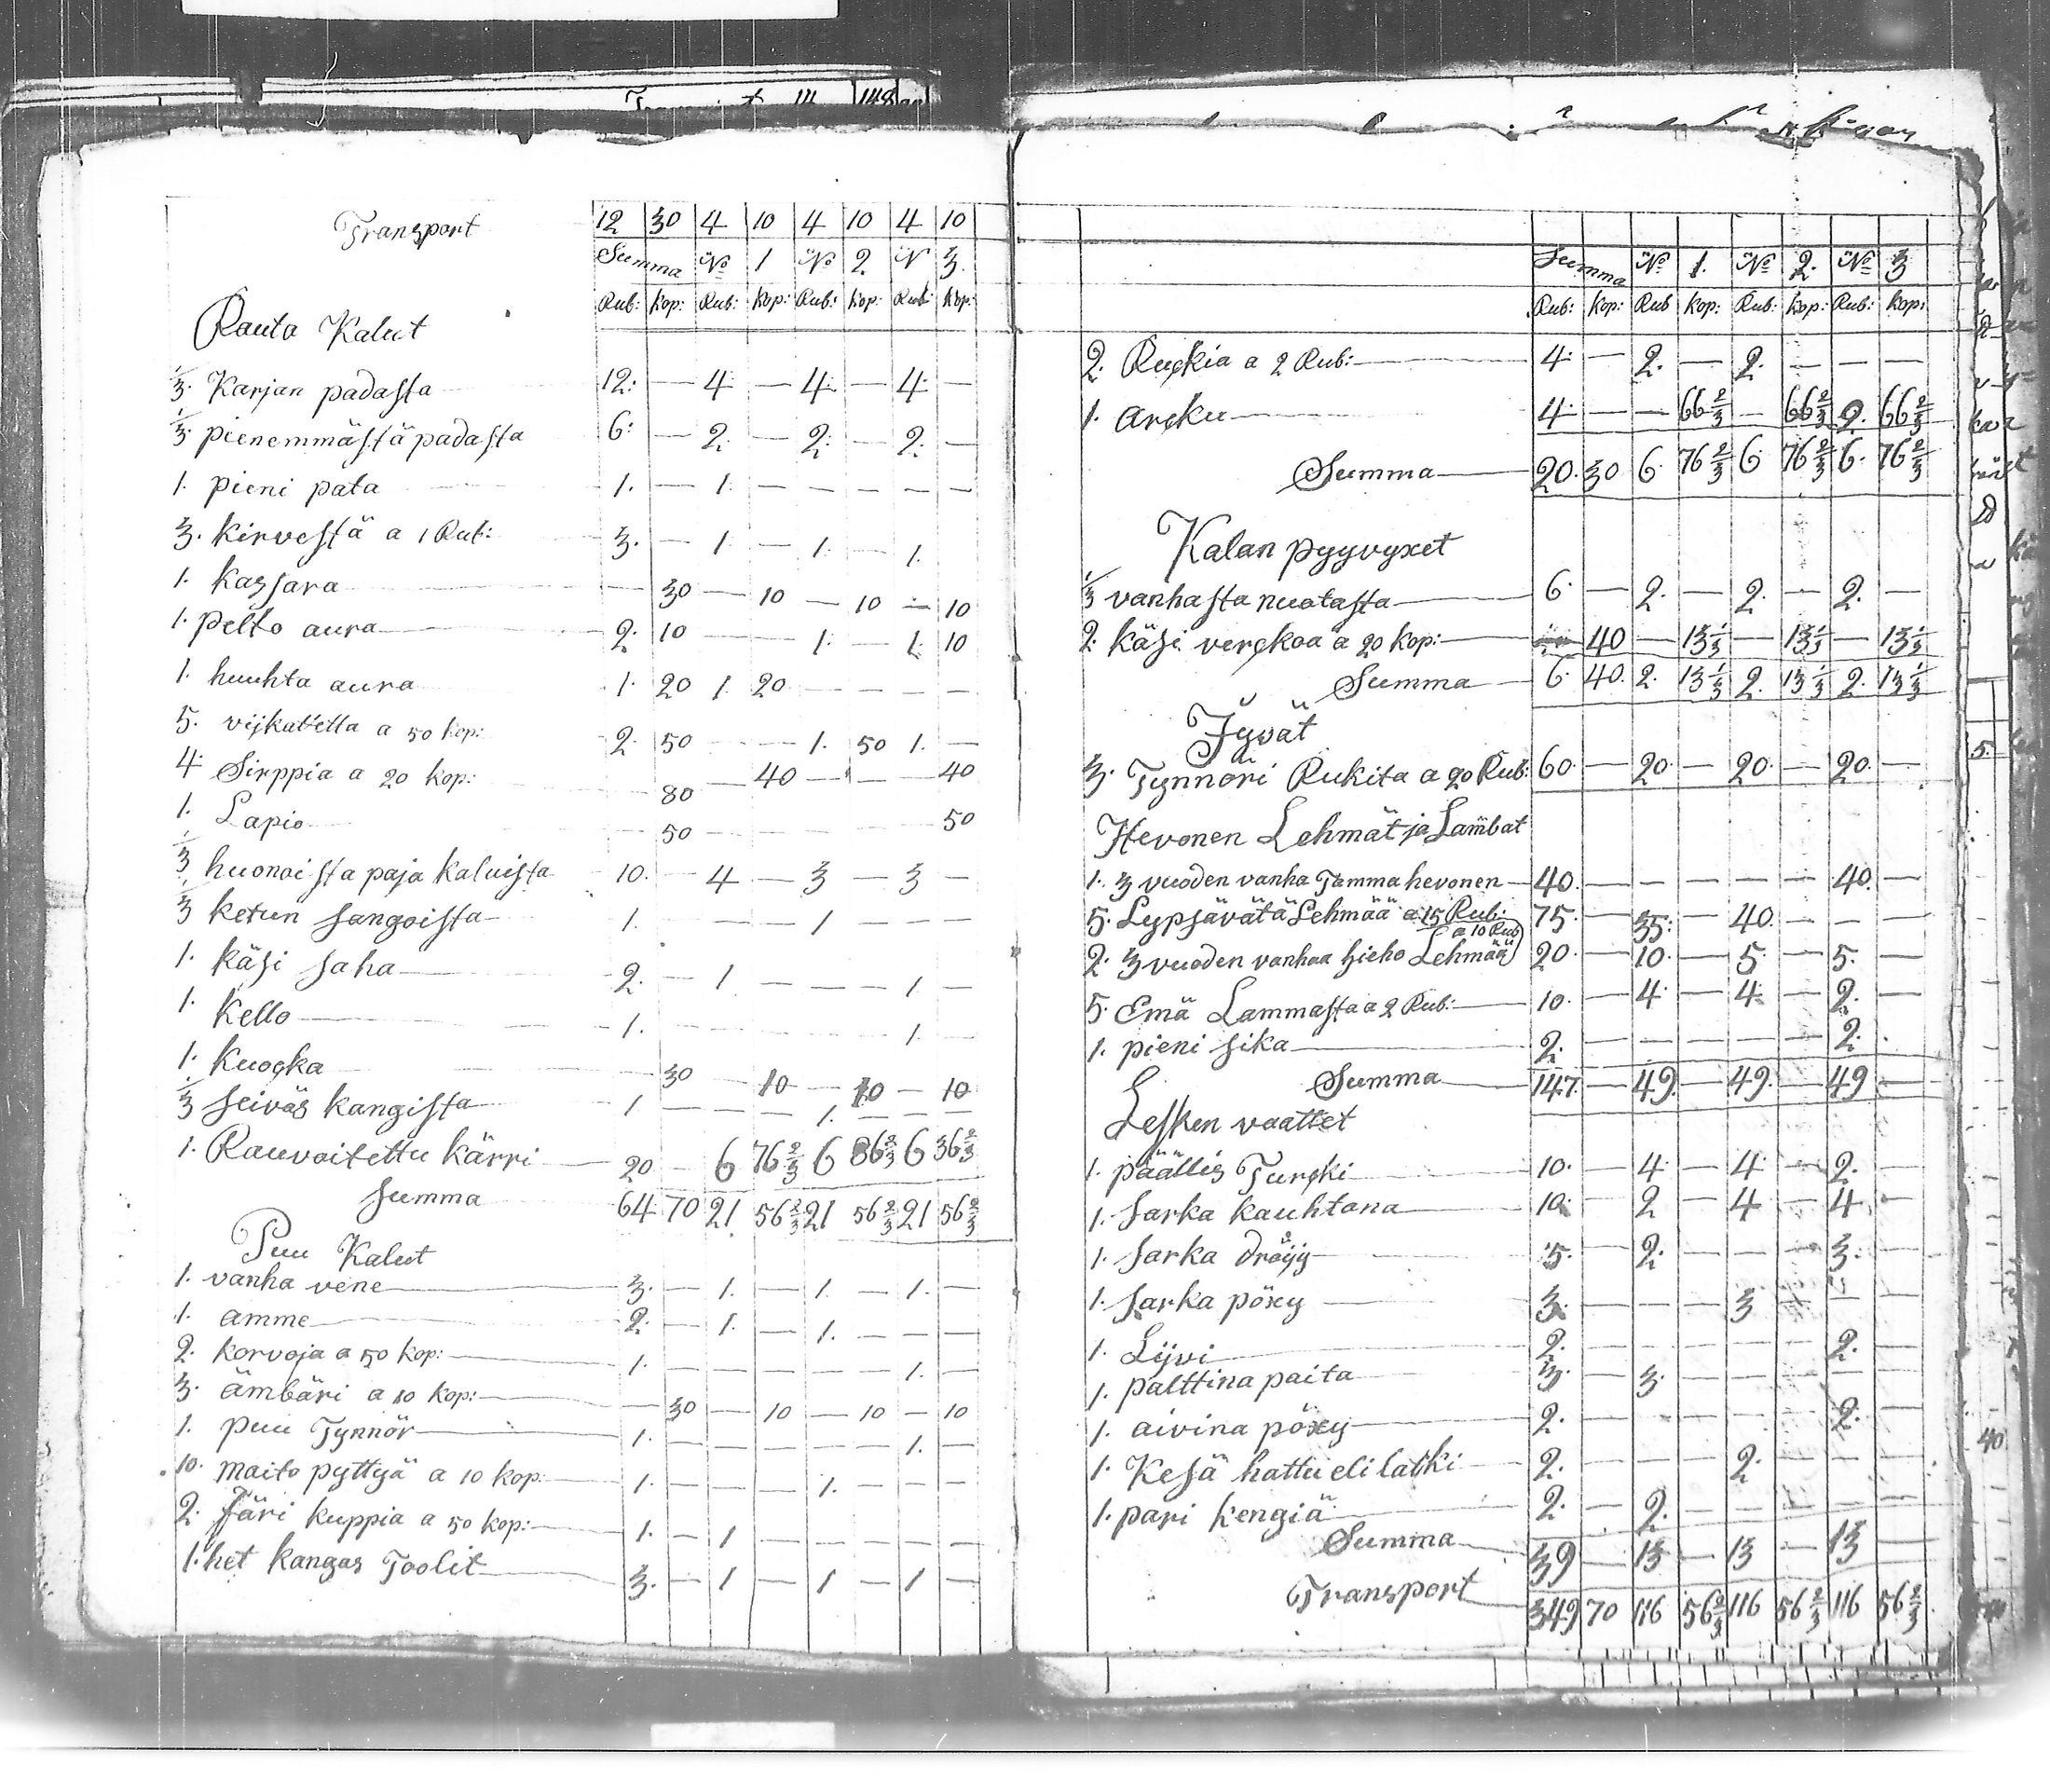 Transport 12 30 4 10 4 10 4 10
Summa No 1 No 2. N 3.
Rub: kop: Rub: kop: Rub: kop: Rub: kop:
Rauta Kalut
1/3. Karjan padasta 12: — 4. — 4. — 4. —
1/3. pienemmästä padasta 6: — 2. — 2. — 2. —
1. pieni pata 1. — 1. — — — — —
3. kirvestä a 1 Rub: 3. — 1 — 1. — 1.
1. kassara — 30 — 10 — 10 — 10
1. pelto aura 2. 10 — — 1. — 1. 10
1. huuhta aura 1. 20 1. 20 — — — —
5. vijkatetta a 50 kop: 2. 50 — — 1. 50 1. —
4. Sirppia a 20 kop: — 80 — 40 — — — 40
1. Lapio — 50 — — — — — 50
1/3 huonoista paja kaluista 10. — 4 — 3 — 3 —
1/3 ketun sangoista 1. — — 1 — — —
1. käsi saha 2. — 1 — — — 1. —
1. Kello 1. — — — — — 1. —
1. kuocka — 30 — 10 — 10 — 10
1/3 seiväs kangista 1 — — — 1. — — —
1. Rauvoitettu kärri 20 — 6 76 2/3 6 86 2/3 6 36 2/3
Summa 64 70 21 56 2/3 21 56 2/3 21 56 2/3
Puu Kalut
1. vanha vene 3. — 1. — 1. — 1. —
1. amme 2. — 1. — 1. — — —
2. korvoja a 50 kop: 1. — — — — — 1. —
3. ämbäri a 10 kop: — 30 — 10 — 10 — 10
1. puu Tynnör 1. — — — — — 1. —
10. maito pyttyä a 10 kop: 1. — — — 1. — — —
2. Järi kuppia a 50 kop: 1. — 1 — — — — —
1. het kangas Toolit 3. — 1 — 1 — 1 —
Summa No 1. No 2. No 3
Rub: kop: Rub kop: Rub: kop: Rub: kop:
2. Ruckia a 2 Rub: 4. — 2. — 2. — — —
1. arcku 4. — — 66 2/3 — 66 2/3 2. 66 2/3
Summa 20. 30 6. 76 2/3 6 76 2/3 6. 76 2/3
Kalan pyyvyxet
1/3 vanhasta nuotasta 6. — 2. — 2. — 2. —
2. käsi verckoa a 20 kop: 40 — 13 1/3 — 13 1/3 — 13 1/3
Summa 6. 40. 2. 13 1/3 2. 13 1/3 2. 13 1/3
Jyvät
3. Tynnöri Rukita a 20 Rub: 60. — 20. — 20. — 20. —
Hevonen Lehmät ja Lambat
1. 3 vuoden vanha Tamma hevonen 40. — — — — — 40. —
5. Lypsävätä Lehmää a 15 Rub: 75. — 35. — 40. — — —
a 10 Rub
2. 3 vuoden vanhaa hieho Lehmää 20. — 10. — 5. — 5. —
5. Emä Lammasta a 2 Rub: 10. — 4. — 4. — 2. —
1. pieni sika 2. — — — — — 2. .
Summa 147. — 49. — 49. — 49 —
Lesken vaattet
1. päällis Turcki 10. — 4. — 4. — 2. —
1. sarka kauhtana 10. — 2 — 4 — 4 —
1. sarka dröijy 5. — 2. — — — 3. —
1. sarka pöxy 3. — — — 3 — — —
1. Lijvi 2. — — — — — 2. —
1. palttina paita 3. — 3. — — — — —
1. aivina pöxy 2. — — — — — 2. —
1. Kesä hattu eli latki 2. — — — 2. — — —
1. pari kengiä 2. — 2. — — — — —
Summa 39 — 13 — 13 — 13 —
Transport 349 70 116 56 2/3 116 56 2/3 116 56 2/3